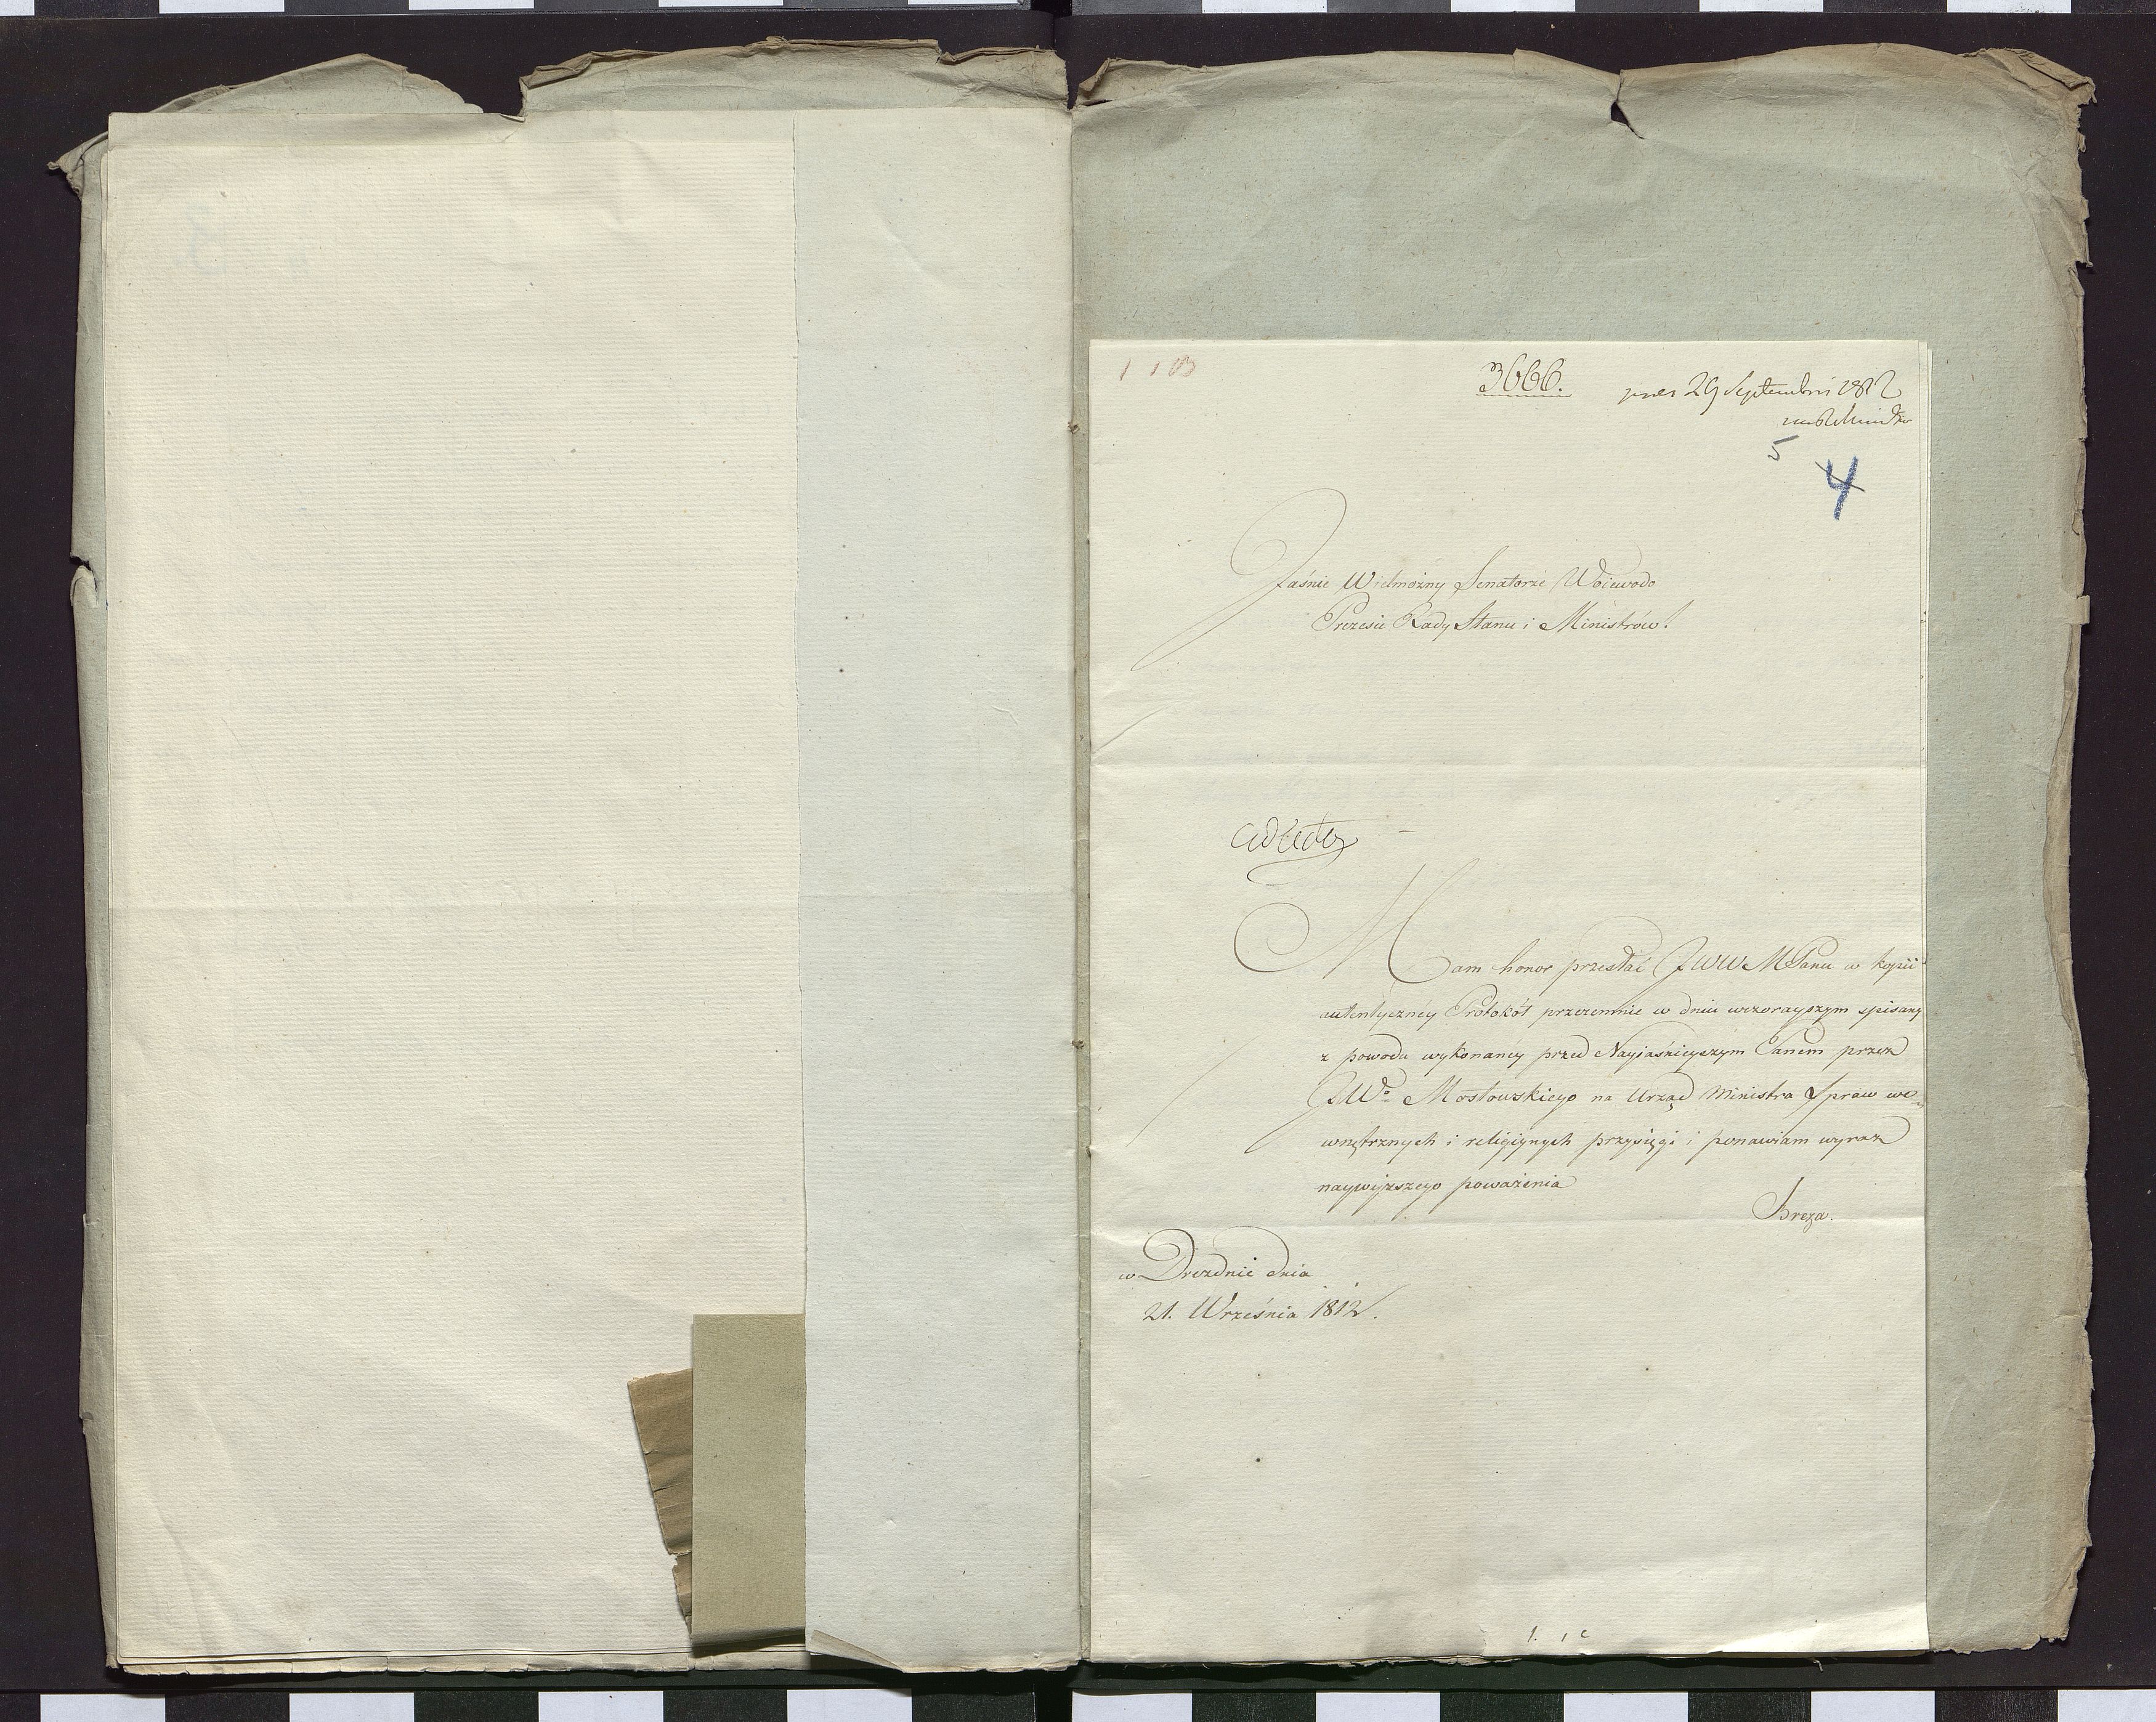 3666.
pres 29 Septembris 1812
5
4
Jaśnie Wielmożny Senatorze Woiewodo
Prezesie Rady Stanu i Ministrów!
ad acta
Mam honor przesłać JWW MPanu w kopii
autentyczney Protokół przezemnie w dniu wczorayszym spisany
z powodu wykonaney przed Nayiaśnieyszym Panem przez
JWo Mostowskiego na Urząd Ministra Spraw we=
wnętrznych i religiynych przysięgi i ponawiam wyraz
naywyższego poważenia
Breza.
w Dreznie dnia
21. Września 1812.